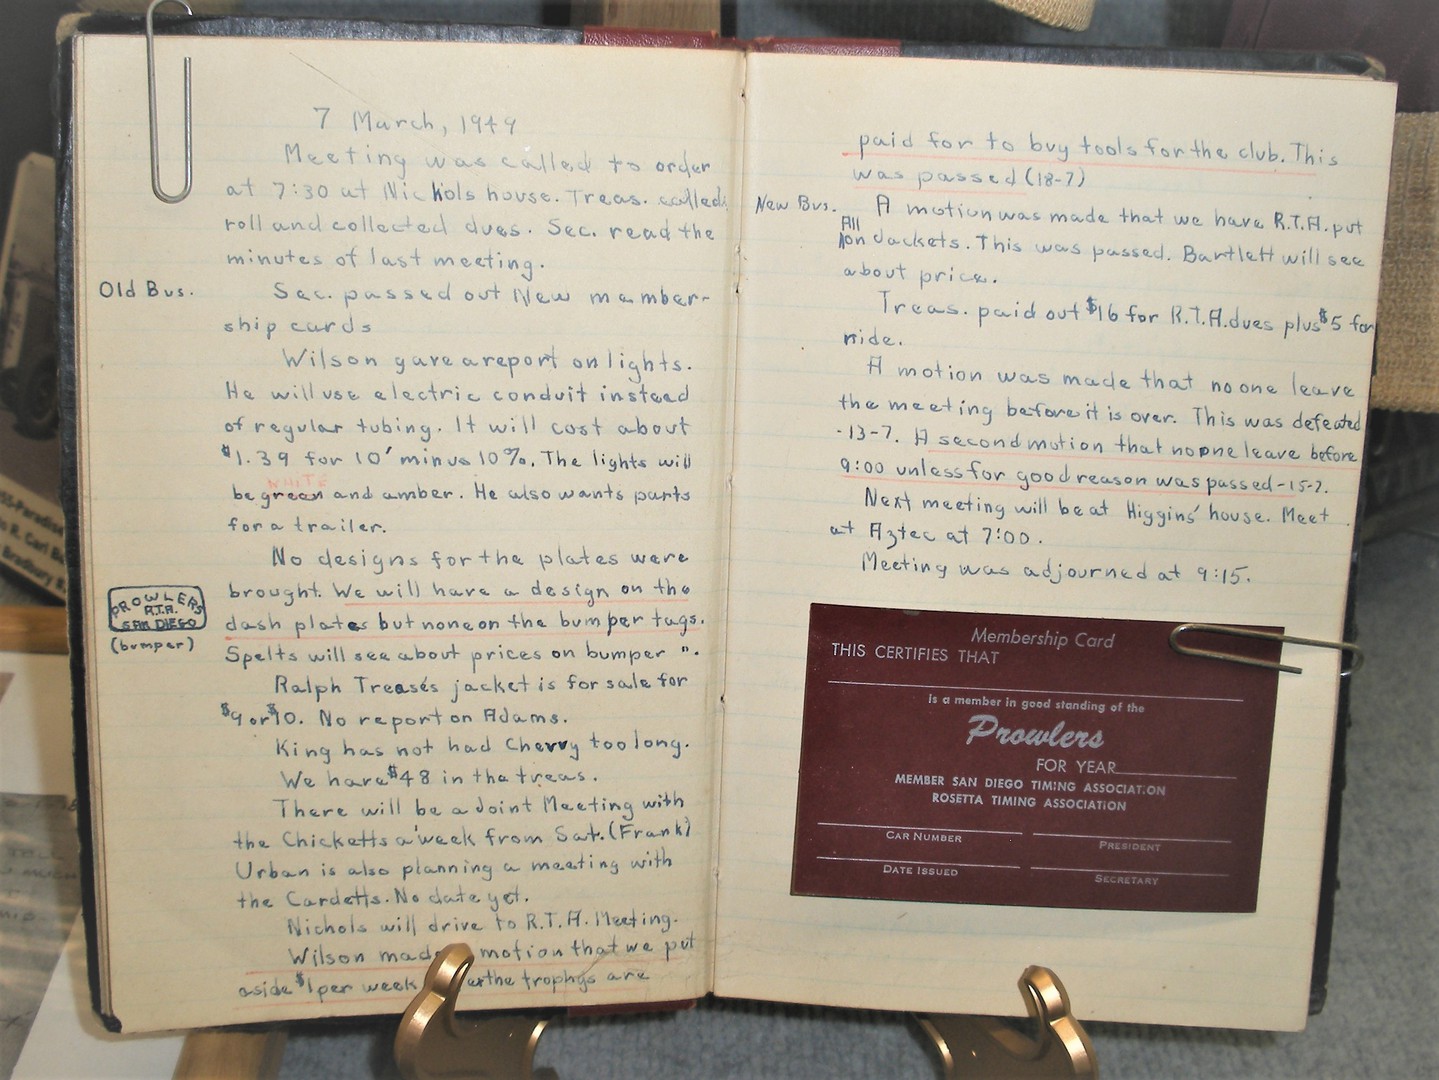 7 March, 1949
Meeting was called to order
at 7:30 at Nichols house. Treas. called
roll and collected dues. Sec. read the
minutes of last meeting.
Old Bus.
Sec. passed out New member-
ship cards
Wilson gave a report on lights.
He will use electric conduit instead
of regular tubing. It will cost about
$1.39 for 10' minus 10%. The lights will
WHITE
be green and amber. He also wants parts
for a trailer.
No designs for the plates were
brought. We will have a design on the
PROWLERS
R.T.A.
SAN DIEGO
(bumper)
dash plates but none on the bumper tags.
Spelts will see about prices on bumper ".
Ralph Treases jacket is for sale for
$9 or $10. No report on Adams.
King has not had Chevvy too long.
We have $48 in the treas.
There will be a Joint Meeting with
the Chicketts a week from Sat. (Frank)
Urban is also planning a meeting with
the Cardetts. No date yet.
Nichols will drive to R.T.A. Meeting.
Wilson made motion that we put
aside $1 per week the trophys are
paid for to buy tools for the club. This
was passed (18-7)
New Bus.
A motion was made that we have R.T.A. put
All
on Jackets. This was passed. Bartlett will see
about price.
Treas. paid out $16 for R.T.A. dues plus $5 for
ride.
A motion was made that no one leave
the meeting before it is over. This was defeated
-13-7. A second motion that no one leave before
9:00 unless for good reason was passed -15-7.
Next meeting will be at Higgins' house. Meet
at Aztec at 7:00.
Meeting was adjourned at 9:15.
Membership Card
THIS CERTIFIES THAT
is a member in good standing of the
Prowlers
FOR YEAR
MEMBER SAN DIEGO TIMING ASSOCIATION
ROSETTA TIMING ASSOCIATION
CAR NUMBER
PRESIDENT
DATE ISSUED
SECRETARY